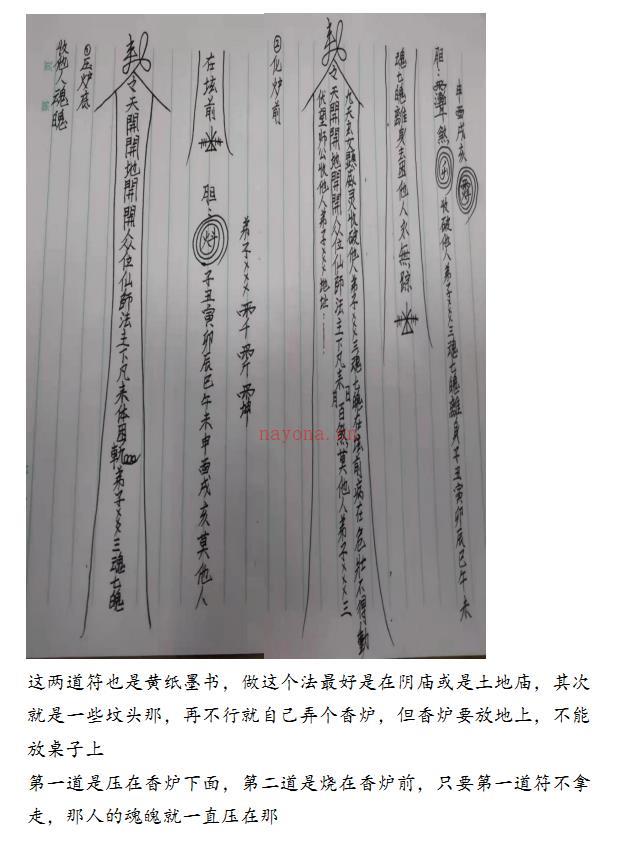 收他人魂魄
①压炉底
令天開開地開開众位仙師法主下凡来体因斬弟子××三魂七魄
在坟前
胆:
子丑寅卯辰巳午未申酉戌亥莫他人
弟子×××
②化炉前
伏望師公收他人弟子×××地址:……
令天開開地開開众位仙師法主下凡来 月日百煞莫他人弟子×××三
九天玄女顕威灵收破他人弟子×××三魂七魄在法前病在危壮不得動
魂七魄離身去困他人永無踪
胆: 煞 收破他人弟子××三魂七魄離身子丑寅卯辰巳午未
申酉戌亥
nayona.cn
这两道符也是黄纸墨书，做这个法最好是在阴庙或是土地庙，其次
就是一些坟头那，再不行就自己弄个香炉，但香炉要放地上，不能
放桌子上
第一道是压在香炉下面，第二道是烧在香炉前，只要第一道符不拿
走，那人的魂魄就一直压在那